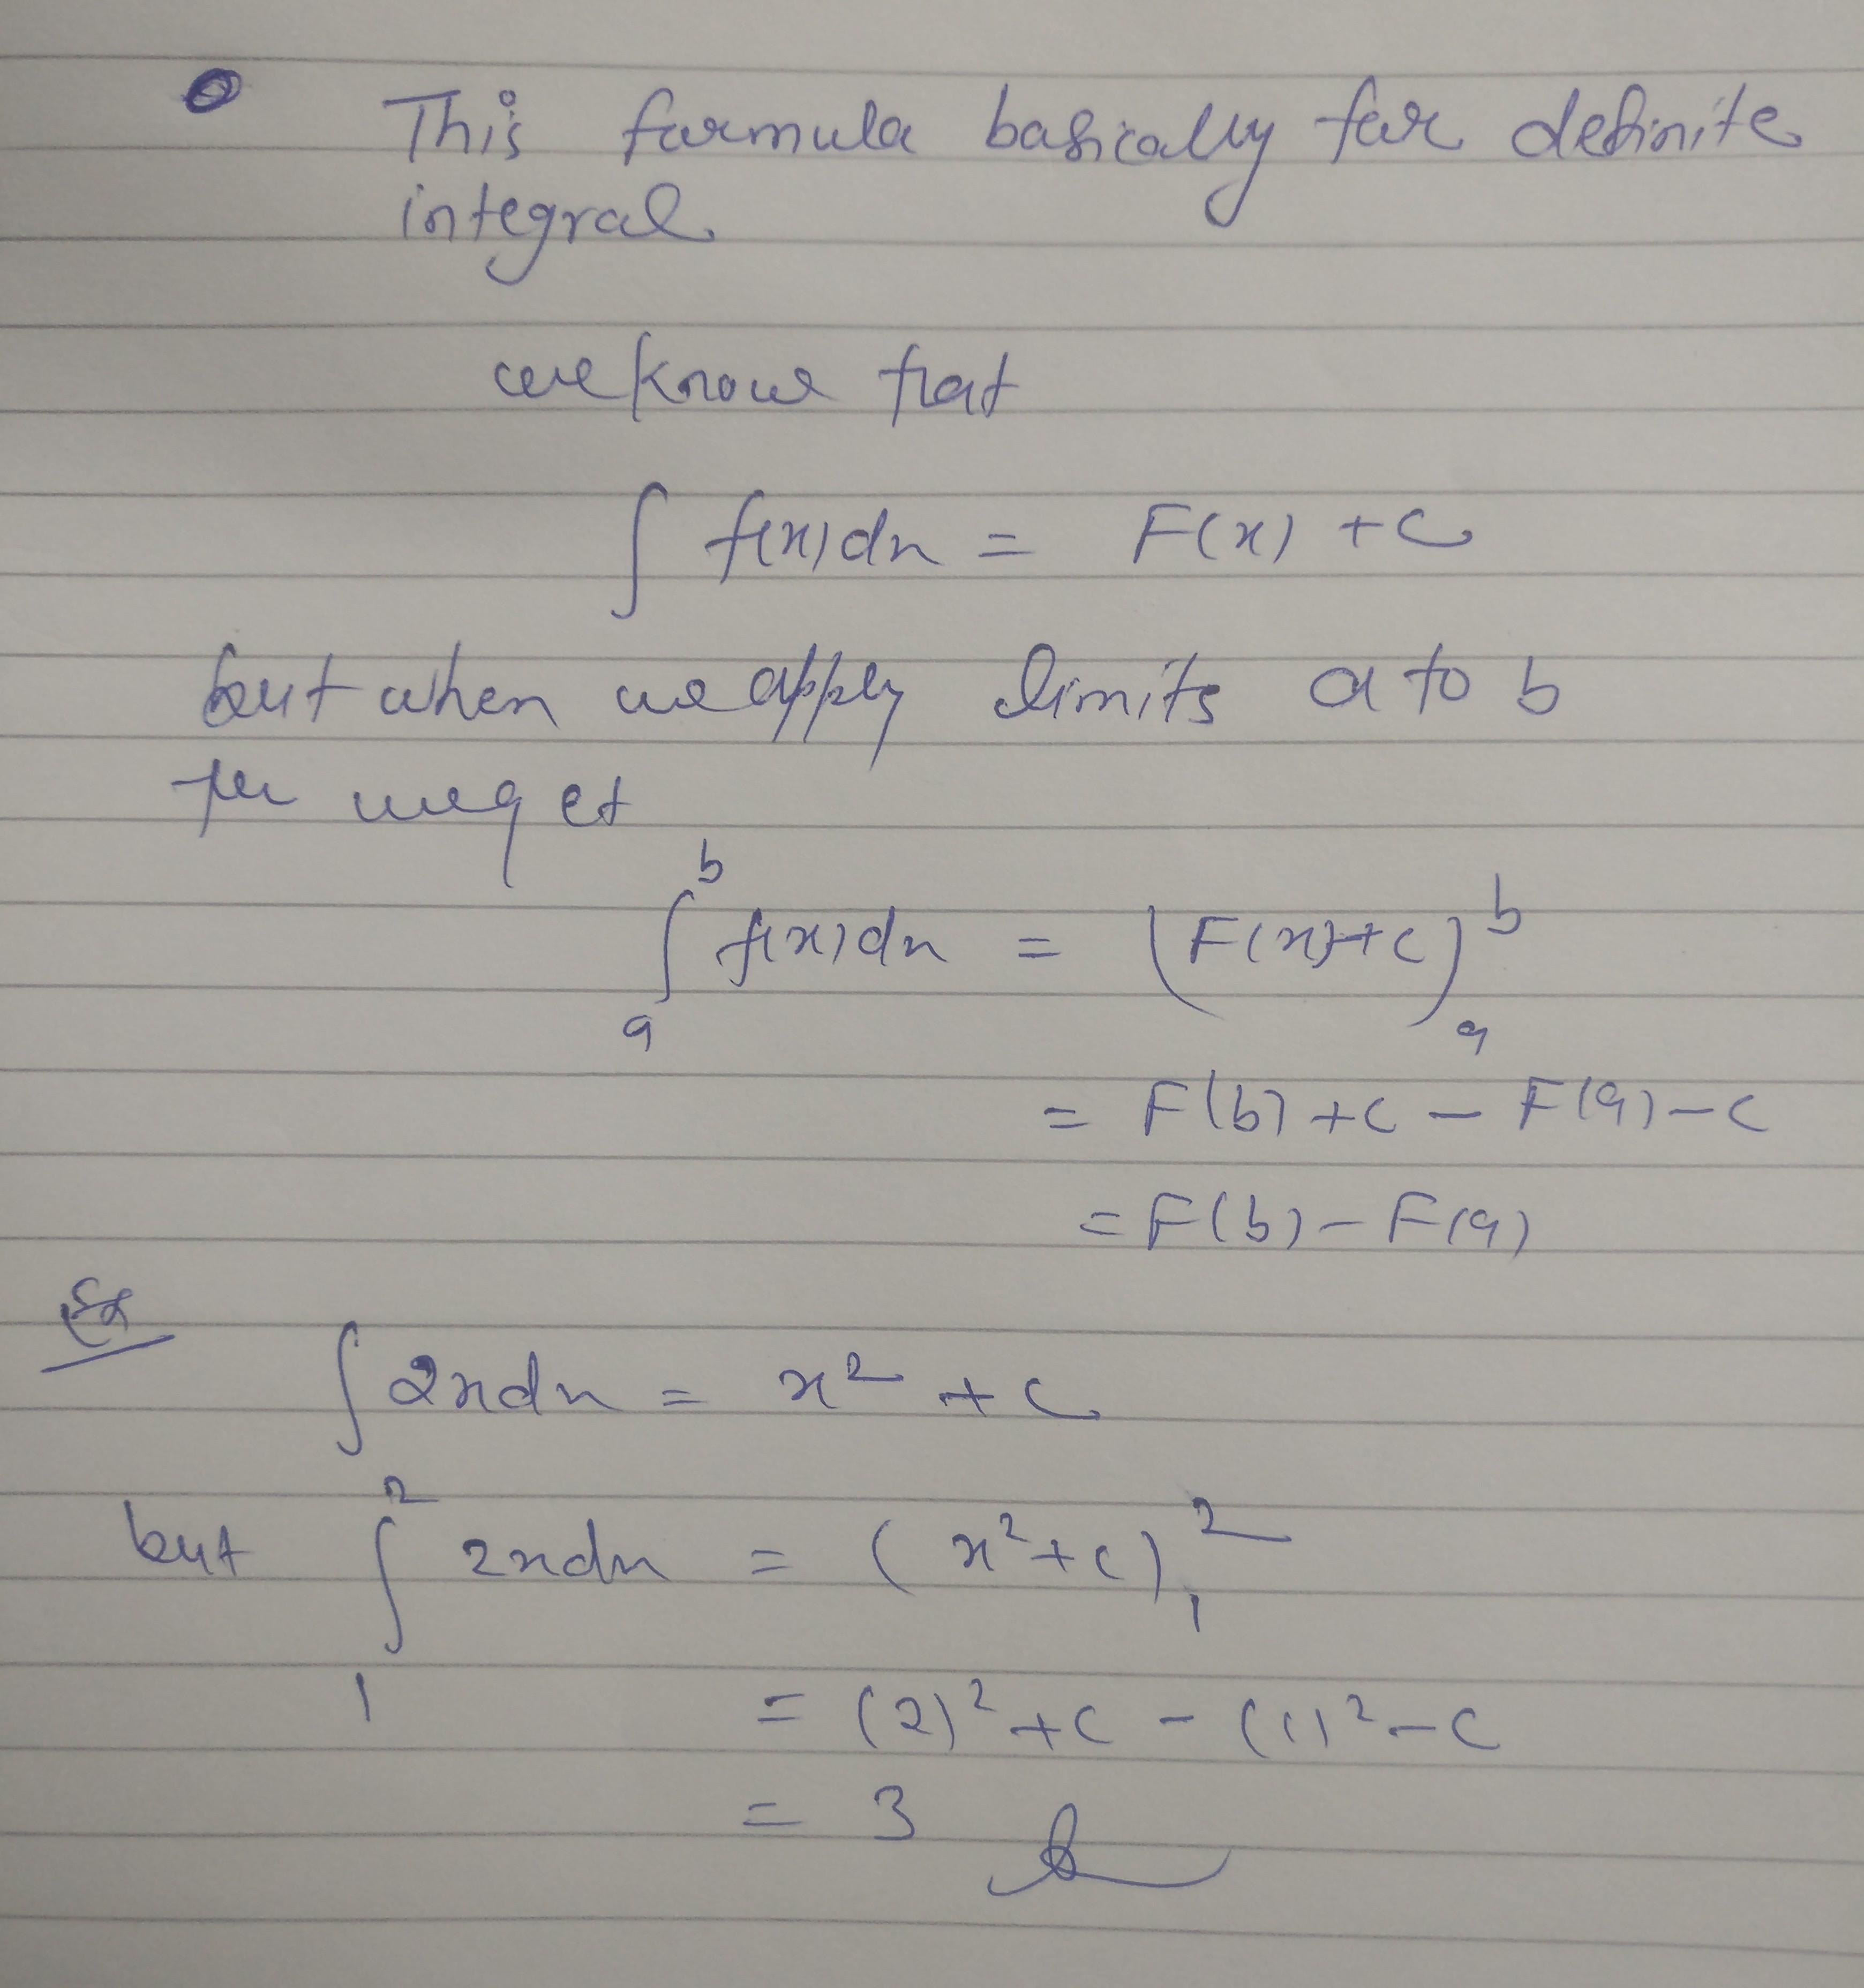 This formula basically for definite
integral
we know that
∫ f(x)dx = F(x) + C
but when we apply limits a to b
we get
∫ₐᵇ f(x)dx = (F(x)+C)ₐᵇ
= F(b) + C - F(a) - C
= F(b) - F(a)
Ex
∫ 2xdx = x² + C
but ∫₁² 2xdx = (x²+C)₁²
= (2)² + C - (1)² - C
= 3